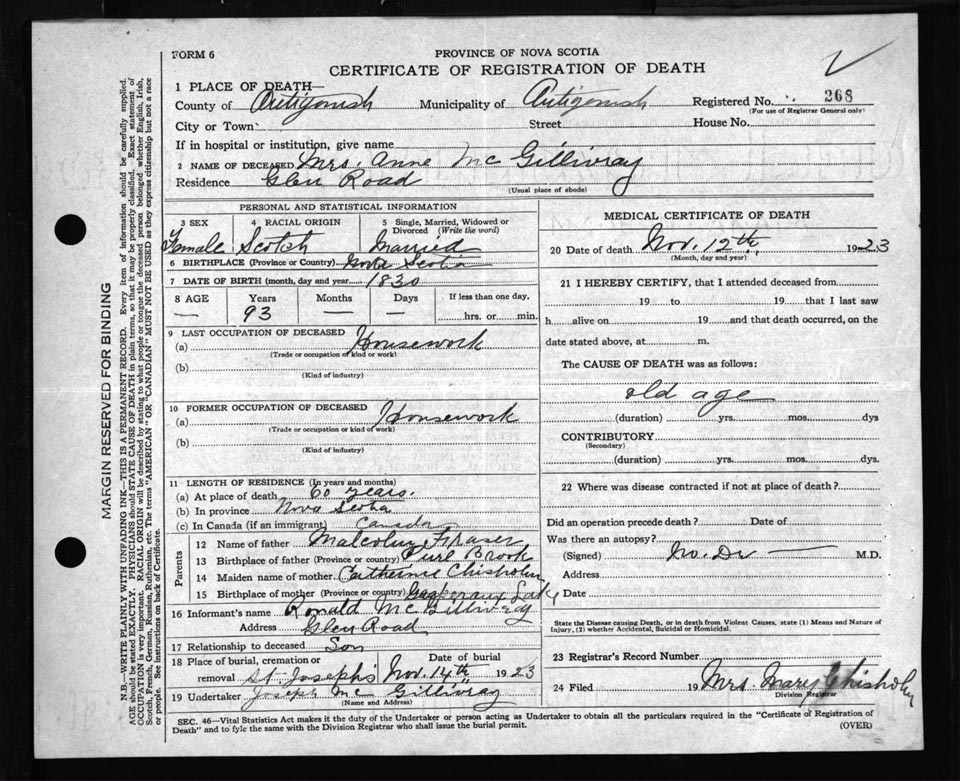 FORM 6
PROVINCE OF NOVA SCOTIA
CERTIFICATE OF REGISTRATION OF DEATH
1 PLACE OF DEATH—
County of Antigonish Municipality of Antigonish Registered No. 268
(For use of Registrar General only)
City or Town Street House No.
If in hospital or institution, give name
2 NAME OF DECEASED Mrs. Anne McGillivray
Residence Glen Road
(Usual place of abode)
PERSONAL AND STATISTICAL INFORMATION
3 SEX 4 RACIAL ORIGIN 5 Single, Married, Widowed or Divorced (Write the word)
Female Scotch Married
6 BIRTHPLACE (Province or Country) Nova Scotia
7 DATE OF BIRTH (month, day and year) 1830
8 AGE Years Months Days If less than one day.
— 93 — — hrs. or min.
9 LAST OCCUPATION OF DECEASED
(a) Housework
(Trade or occupation of kind or work)
(b)
(Kind of industry)
10 FORMER OCCUPATION OF DECEASED
(a) Housework
(Trade or occupation or kind of work)
(b)
(Kind of industry)
11 LENGTH OF RESIDENCE (In years and months)
(a) At place of death 60 years.
(b) In province Nova Scotia
(c) In Canada (if an immigrant) Canada
Parents
12 Name of father Malcolm Fraser
13 Birthplace of father (Province or country) Purl Brook
14 Maiden name of mother Catherine Chisholm
15 Birthplace of mother (Province or country) Lake
16 Informant's name Ronald McGillivray
Address Glen Road
17 Relationship to deceased Son
18 Place of burial, cremation or Date of burial
removal St. Josephs Nov. 14th, 1923
19 Undertaker Joseph McGillivray
(Name and Address)
MEDICAL CERTIFICATE OF DEATH
20 Date of death Nov. 12th, 1923
(Month, day and year)
21 I HEREBY CERTIFY, that I attended deceased from
19 to 19 that I last saw
h alive on 19 and that death occurred, on the
date stated above, at m.
The CAUSE OF DEATH was as follows:
old age
(duration) yrs. mos. dys
CONTRIBUTORY
(Secondary)
(duration) yrs. mos. dys.
22 Where was disease contracted if not at place of death?
Did an operation precede death? Date of
Was there an autopsy?
(Signed) No. Dr — M.D.
Address
Date
State the Disease causing Death, or in death from Violent Causes, state (1) Means and Nature of
Injury, (2) whether Accidental, Suicidal or Homicidal.
23 Registrar's Record Number
24 Filed 19 Mrs. Mary Chisholm
Division Registrar
SEC. 46—Vital Statistics Act makes it the duty of the Undertaker or person acting as Undertaker to obtain all the particulars required in the "Certificate of Registration of
Death" and to fyle the same with the Division Registrar who shall issue the burial permit. (OVER)
MARGIN RESERVED FOR BINDING
N.B.—WRITE PLAINLY WITH UNFADING INK—THIS IS A PERMANENT RECORD. Every item of information should be carefully supplied.
AGE should be stated EXACTLY. PHYSICIANS should STATE CAUSE OF DEATH in plain terms, so that it may be properly classified. Exact statement of
OCCUPATION is very important. RACIAL ORIGIN will be described by stating to what people or tongue the deceased person belonged whether English, Irish,
Scotch, French, German, Russian, Ruthenian, etc. The terms "AMERICAN" OR "CANADIAN" MUST NOT BE USED as they express citizenship but not a race
or people. See instructions on back of Certificate.